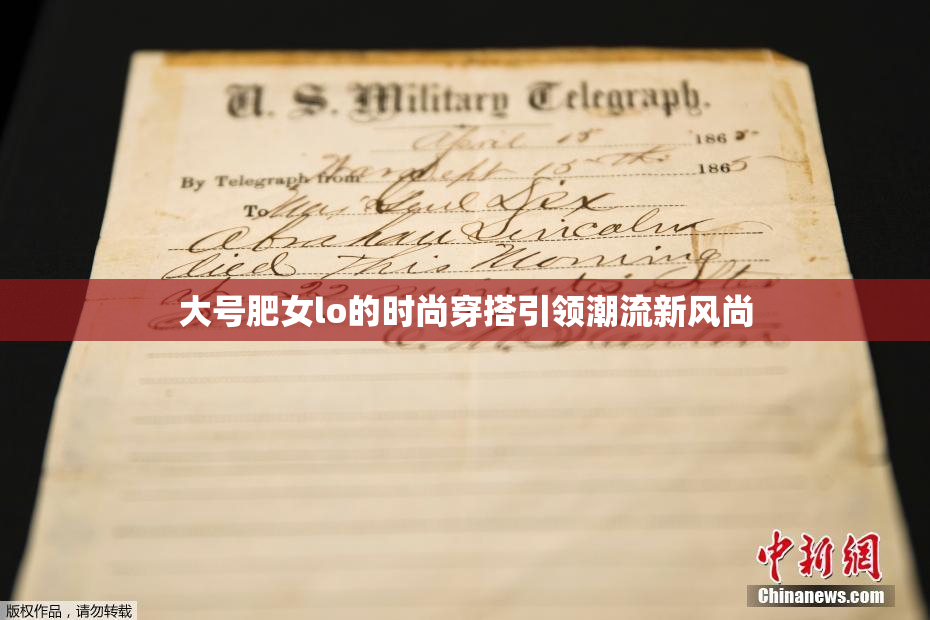 U. S. Military Telegraph.
April 15 1865
By Telegraph from War Dept 15th 1865
To Maj Genl Dix
Abraham Lincoln
died This Morning
at 22 minutes after
大号肥女lo的时尚穿搭引领潮流新风尚
E. M. Stanton
中新网
Chinanews.com
版权作品，请勿转载